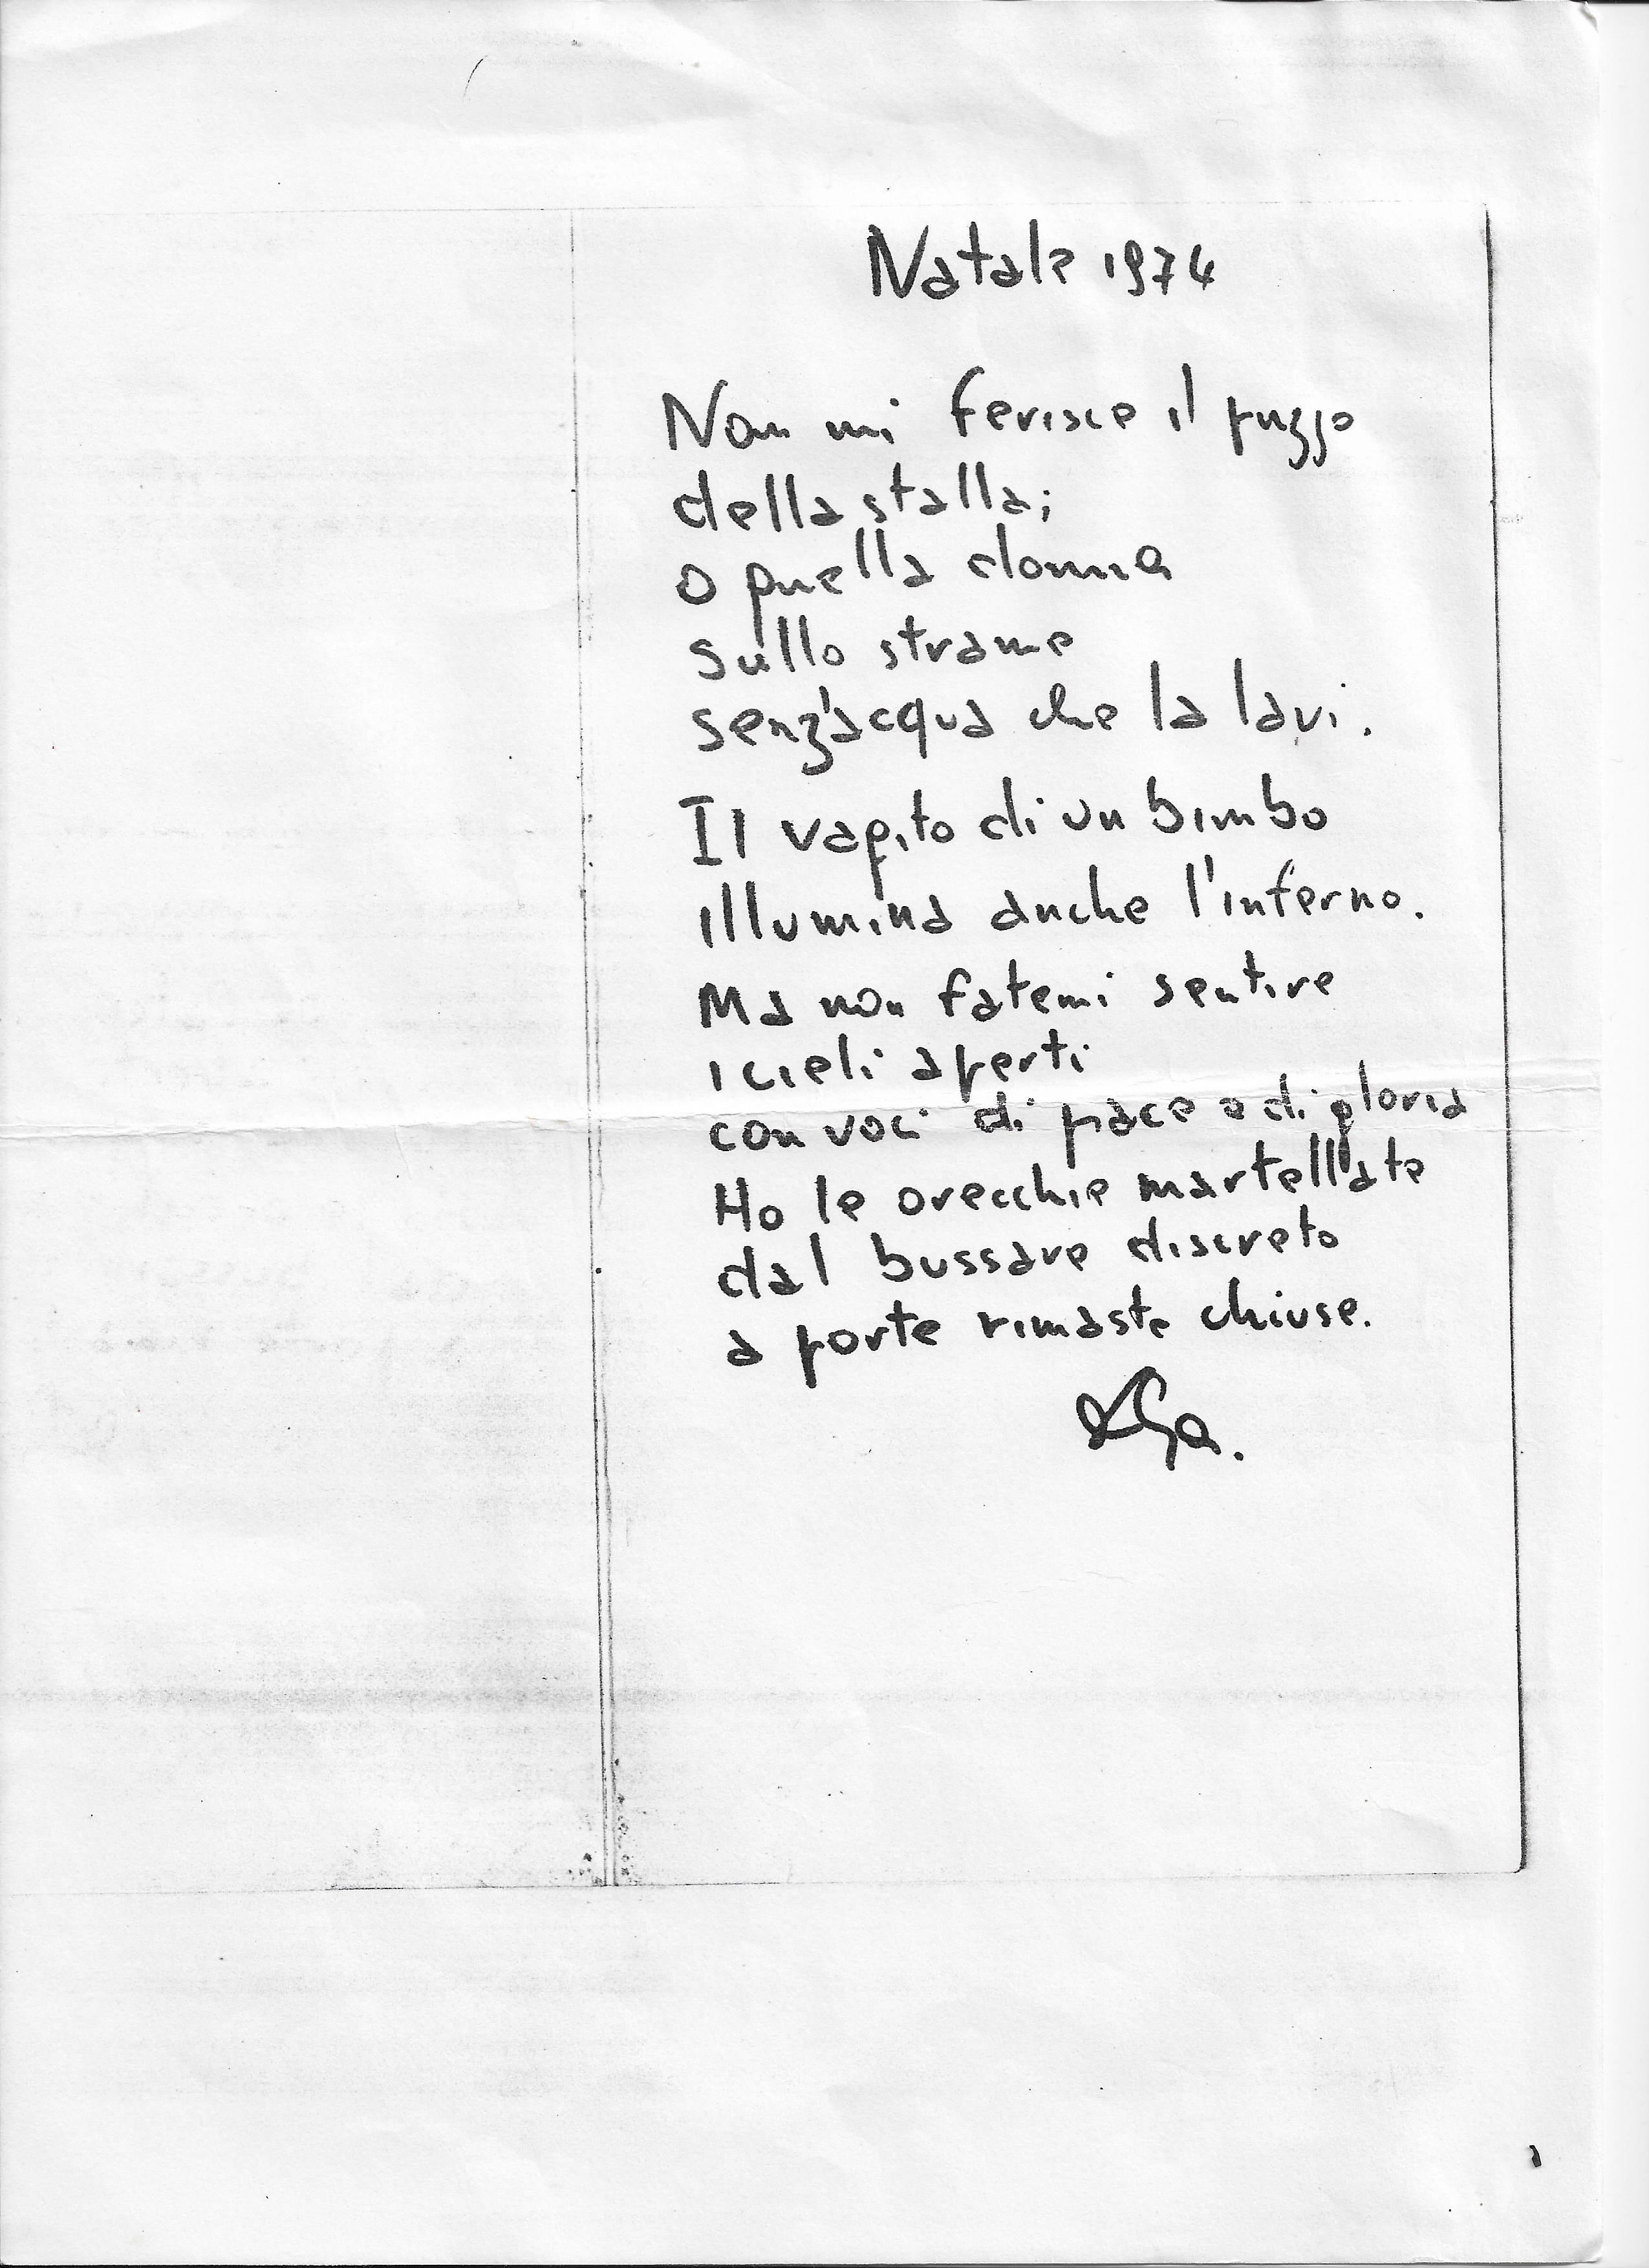 Natale 1974
Non mi ferisce il puzzo
della stalla;
o quella donna
sullo strame
senz'acqua che la lavi.
Il vagito di un bimbo
illumina anche l'inferno.
Ma non fatemi sentire
i cieli aperti
con voci di pace e di gloria
Ho le orecchie martellate
dal bussare discreto
a porte rimaste chiuse.